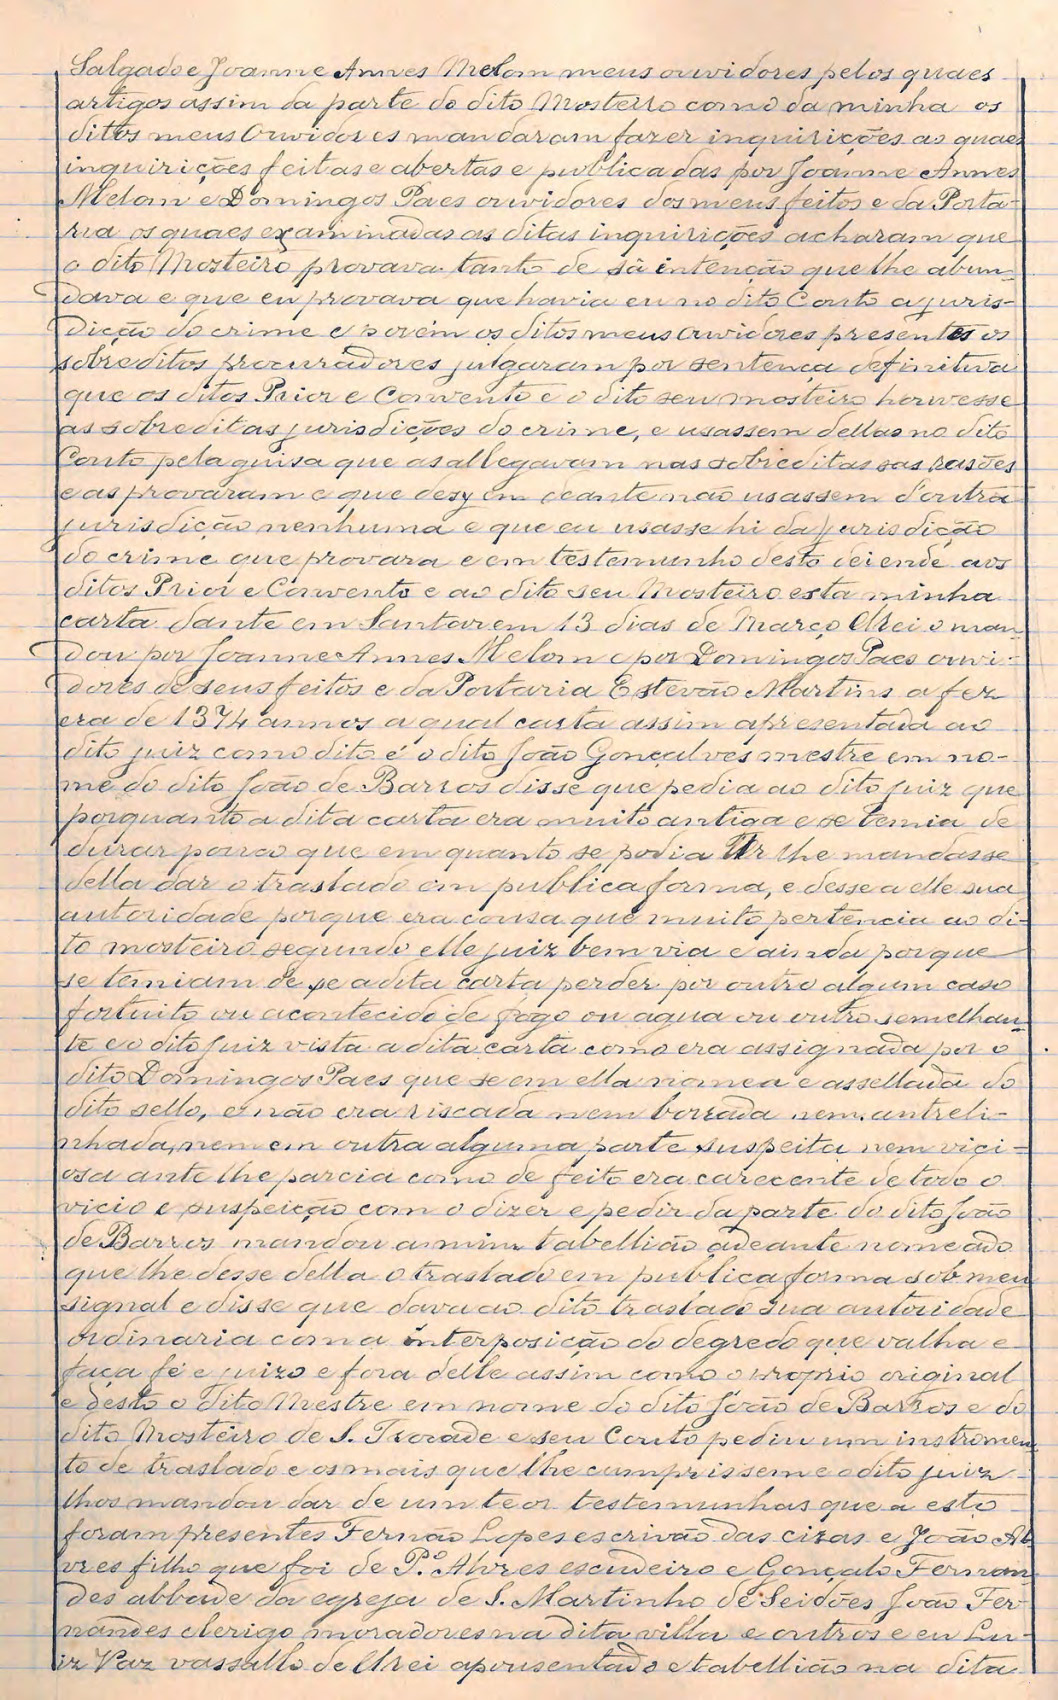 Salgado e Joanne Annes Melom meus ouvidores pelos quaes
artigos assim da parte do dito Mosteiro como da minha os
ditos meus Ouvidores mandaram fazer inquirições as quaes
inquirições feitas e abertas e publicadas por Joanne Annes
Melom e Domingos Paes ouvidores dos meus feitos e da Porta-
ria os quaes examinadas as ditas inquirições acharam que
o dito Mosteiro provava tanto de sà intenção que lhe abun-
dava e que eu provava que havia eu no dito Couto a juris-
dição do crime e porém os ditos meus ouvidores presentes os
sobreditos procuradores julgaram por sentença definitiva
que os ditos Prior e Convento e o dito seu mosteiro houvesse
as sobreditas jurisdições do crime, e usassem dellas no dito
Couto pela guisa que as allegavam nas sobreditas sas rasões
e as provaram e que desy em deante não usassem d'outra
jurisdição nenhuma e que eu usasse hi da jurisdição
do crime que provara e em testemunho desto dei ende aos
ditos Prior e Convento e ao dito seu Mosteiro esta minha
carta dante em Santarem 13 dias de Março Elrei o man-
dou por Joanne Annes Melom e por Domingos Paes ouvi-
dores de seus feitos e da Portaria Estevão Martins a fez
era de 1374 annos a qual carta assim apresentada ao
dito juiz como dito é o dito João Gonçalves mestre em no-
me do dito João de Barros disse que pedia ao dito juiz que
porquanto a dita carta era muito antiga e se temia de
durar pouco que em quanto se podia ler lhe mandasse
della dar o traslado em publica forma, e desse a elle sua
autoridade porque era cousa que muito pertencia ao di-
to mosteiro segundo elle juiz bem via e ainda porque
se temiam de se a dita carta perder por outro algum caso
fortuito ou acontecido de fogo ou agua ou outro semelhan-
te e o dito juiz vista a dita carta como era assignada por o
dito Domingos Paes que se em ella nomea e assellada do
dito sello, e não era riscada nem borrada nem antreli-
nhada, nem em outra alguma parte suspeita nem vici-
osa ante lhe parcia como de feito era carecente de todo o
vicio e suspeição com o dizer e pedir da parte do dito João
de Barros mandou a mim tabellião adeante nomeado
que lhe desse della o traslado em publica forma sob meu
signal e disse que dava ao dito traslado sua autoridade
ordinaria com a interposição do degredo que valha e
faça fé e juizo e fora delle assim como o proprio original
e desto o dito Mestre em nome do dito João de Barros e do
dito Mosteiro de S. Trocade e seu Couto pediu um instromen-
to de traslado e os mais que lhe cumprissem e o dito juiz
lhos mandou dar de um teor testemunhas que a esto
foram presentes Fernão Lopes escrivão das cizas e João Al-
vres filho que foi de P.º Alvres escudeiro e Gonçalo Fernan-
des abbade da egreja de S. Martinho de Seidões João Fer-
nandes clerigo moradores na dita villa e outros e eu Lu-
iz Vaz vassallo de Elrei apousentado e tabellião na dita